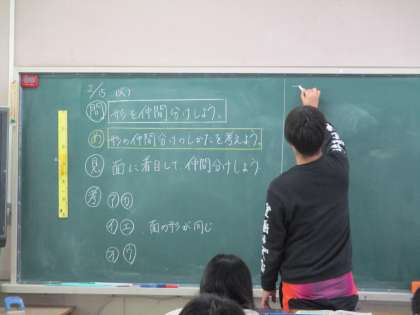 2/15 (火)
問 形を仲間分けしよう。
め 形の仲間分けのしかたを考えよう。
見 面に着目して、仲間分けしよう
考 ア カ
イ エ 面の形が同じ
オ ウ